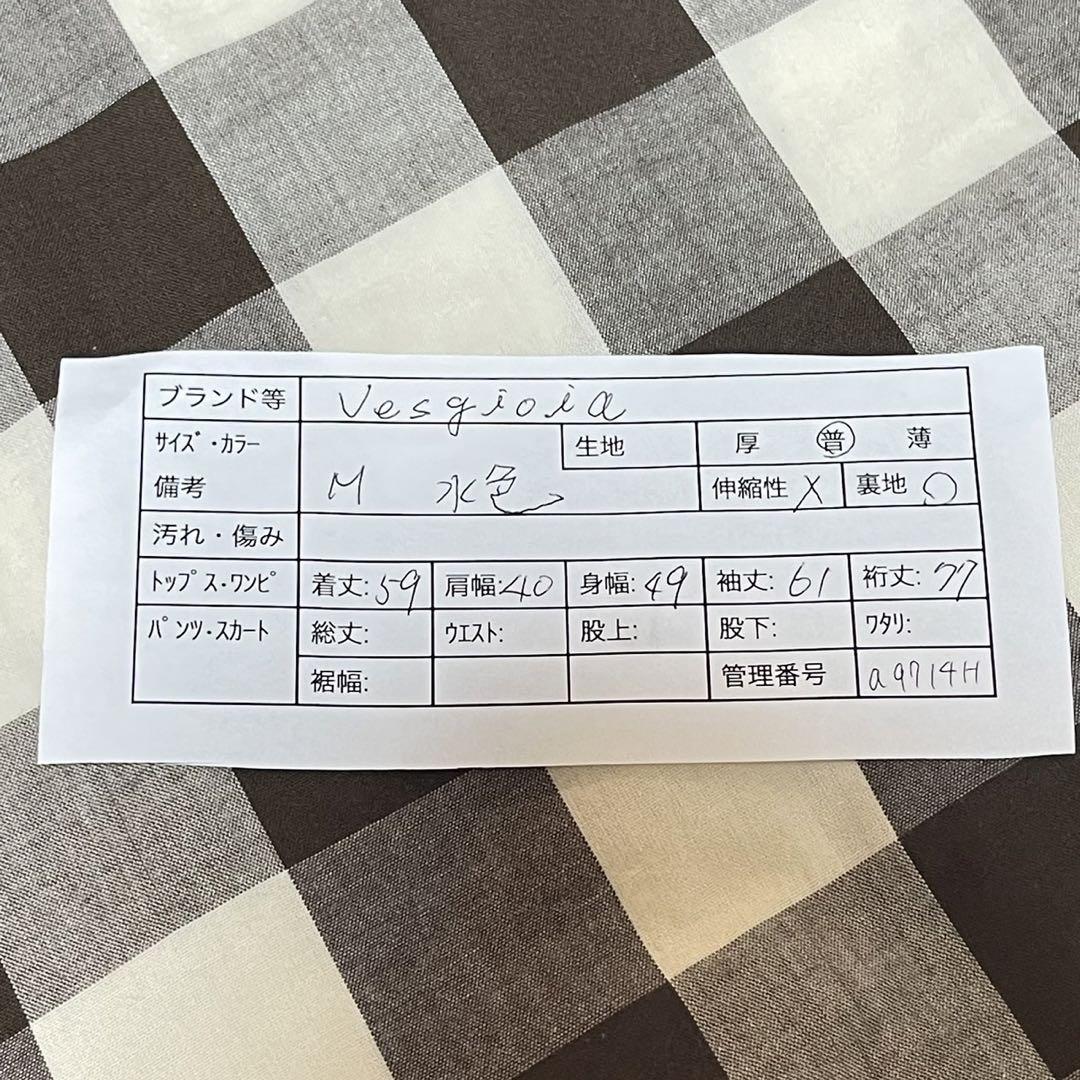 ブランド等 Vesgioia
サイズ・カラー 生地 厚 普 薄
備考 M 水色 伸縮性 X 裏地 〇
汚れ・傷み
トップス・ワンピ 着丈:59 肩幅:40 身幅:49 袖丈:61 裄丈:77
パンツ・スカート 総丈: ウエスト: 股上: 股下: ワタリ:
裾幅: 管理番号 a9714H